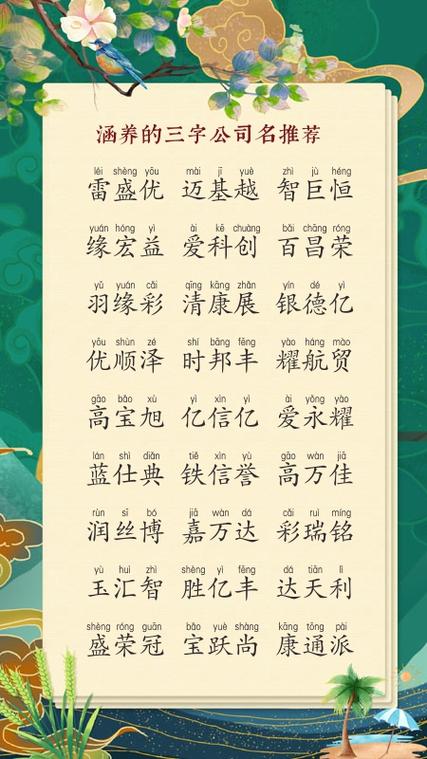 涵养的三字公司名推荐
léi shèng yōu mài jī yuè zhì jù héng
雷盛优 迈基越 智巨恒
yuán hóng yì ài kē chuàng bǎi chāng róng
缘宏益 爱科创 百昌荣
yǔ yuán cǎi qīng kāng zhǎn yín dé yì
羽缘彩 清康展 银德亿
yōu shùn zé shí bāng fēng yào háng mào
优顺泽 时邦丰 耀航贸
gāo bǎo xù yì xìn yì ài yǒng yào
高宝旭 亿信亿 爱永耀
lán shì diǎn tiě xìn yù gāo wàn jiā
蓝仕典 铁信誉 高万佳
rùn sī bó jiā wàn dá cǎi ruì míng
润丝博 嘉万达 彩瑞铭
yù huì zhì shèng yì fēng dá tiān lì
玉汇智 胜亿丰 达天利
shèng róng guān bǎo yuè shàng kāng tōng pài
盛荣冠 宝跃尚 康通派